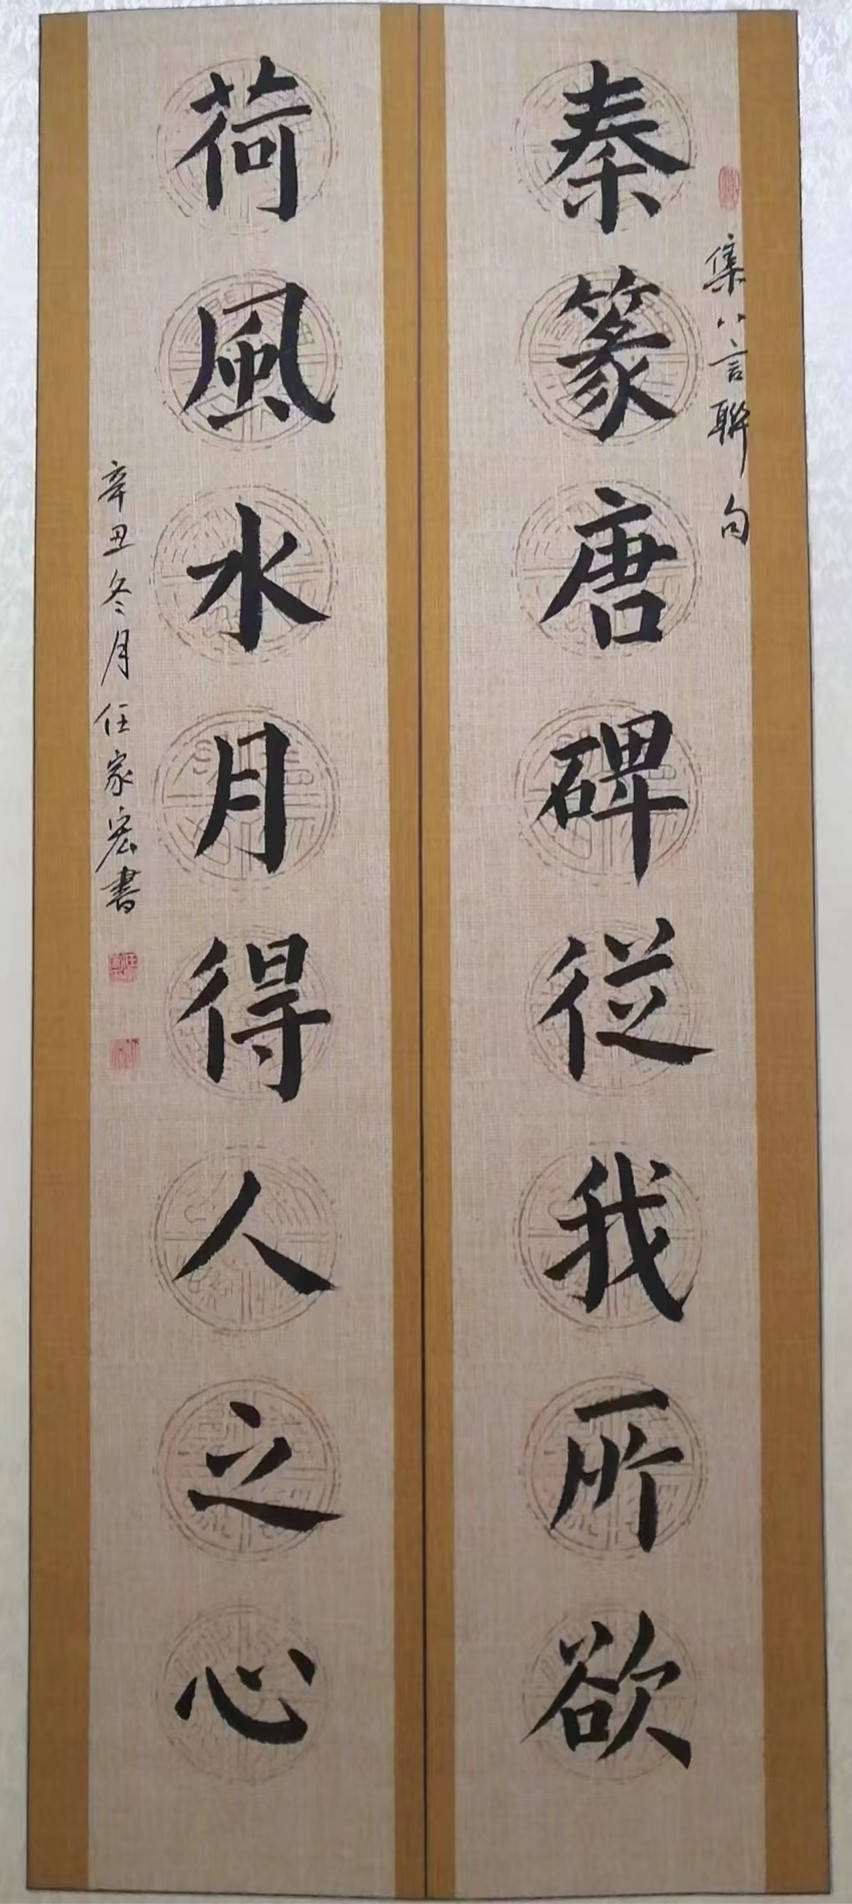 集八言聯句
秦篆唐碑従我所欲
荷風水月得人之心
辛丑冬月任家宏書